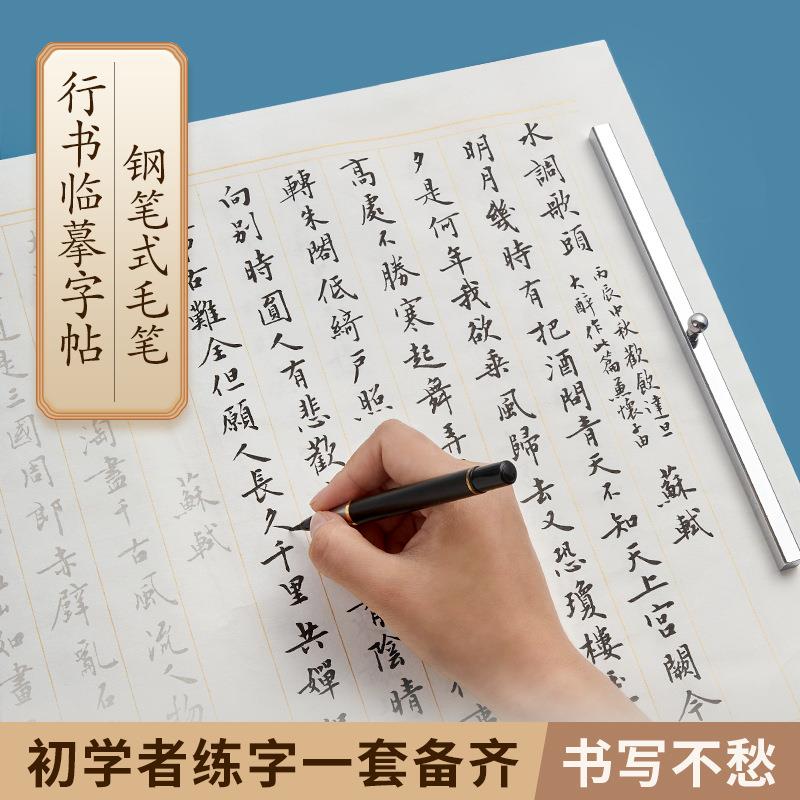 行书临摹字帖
钢笔式毛笔
水調歌頭
丙辰中秋歡飲達旦
大醉作此篇兼懷子由
蘇軾
明月幾時有把酒問青天不知天上宮闕今
夕是何年我欲乘風歸去又恐瓊樓
高處不勝寒起舞弄
轉朱閣低綺戶照
向別時圓人有悲歡
有陰晴
古難全但願人長久千里共嬋
蘇軾
淘盡千古風流人物
是三國周郎赤壁亂石
如畫
初学者练字一套备齐
书写不愁